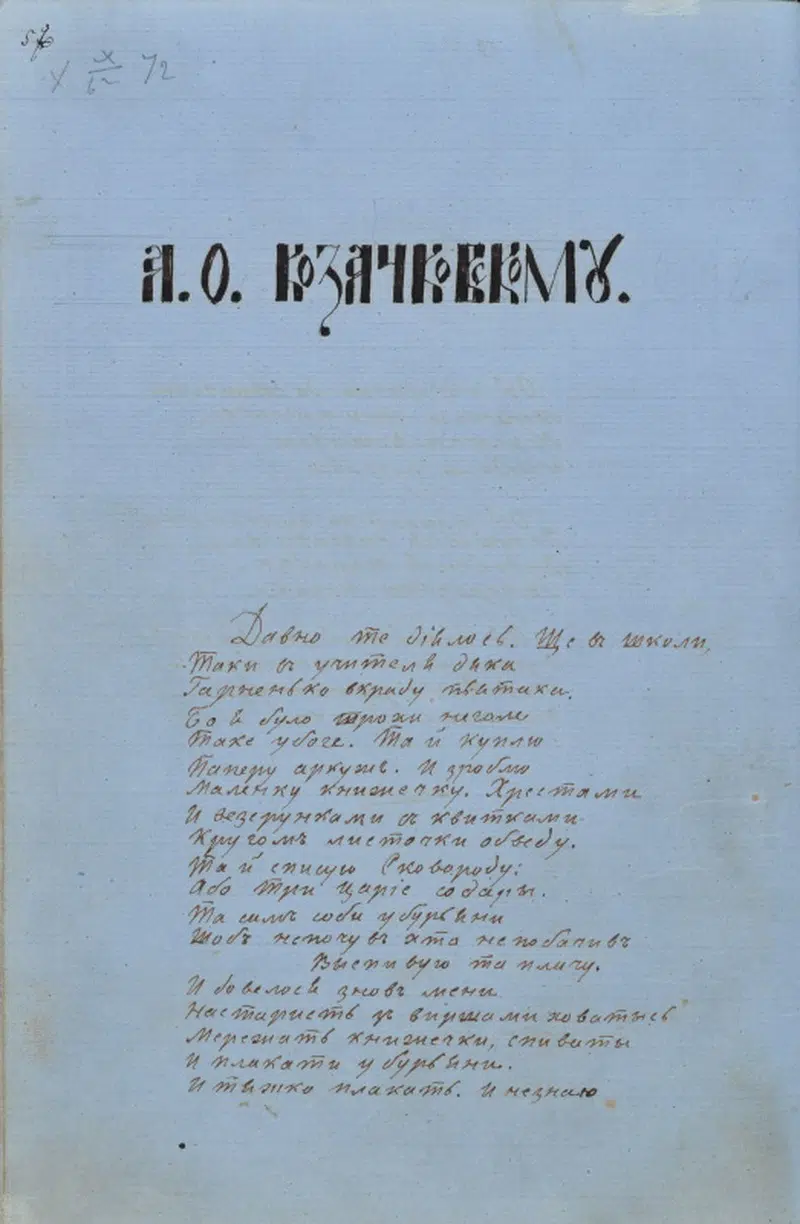 57
72
А. О. КОЗАЧКОВСКОМУ.
Давно те діялось. Ще въ школи,
Таки въ учителя дяка
Гарненько вкраду пьятака.
Бо я було трохи неголе
Таке убоге. Та й куплю
Паперу аркушъ. И зроблю
Маленку книжечку. Хрестами
И везерунками съ квитками
Кругомъ листочки обведу.
Та й списую Сковороду:
Або три царіе со дары.
Та самъ соби у бурьяни
Щобъ непочувъ хто непобачивъ
Выспивую та плачу.
И довелося зновъ мени
Настаристь зъ виршами ховатысь
Мережать книжечки, спиваты
И плакати у бурьяни.
И тяжко плакать. И незнаю